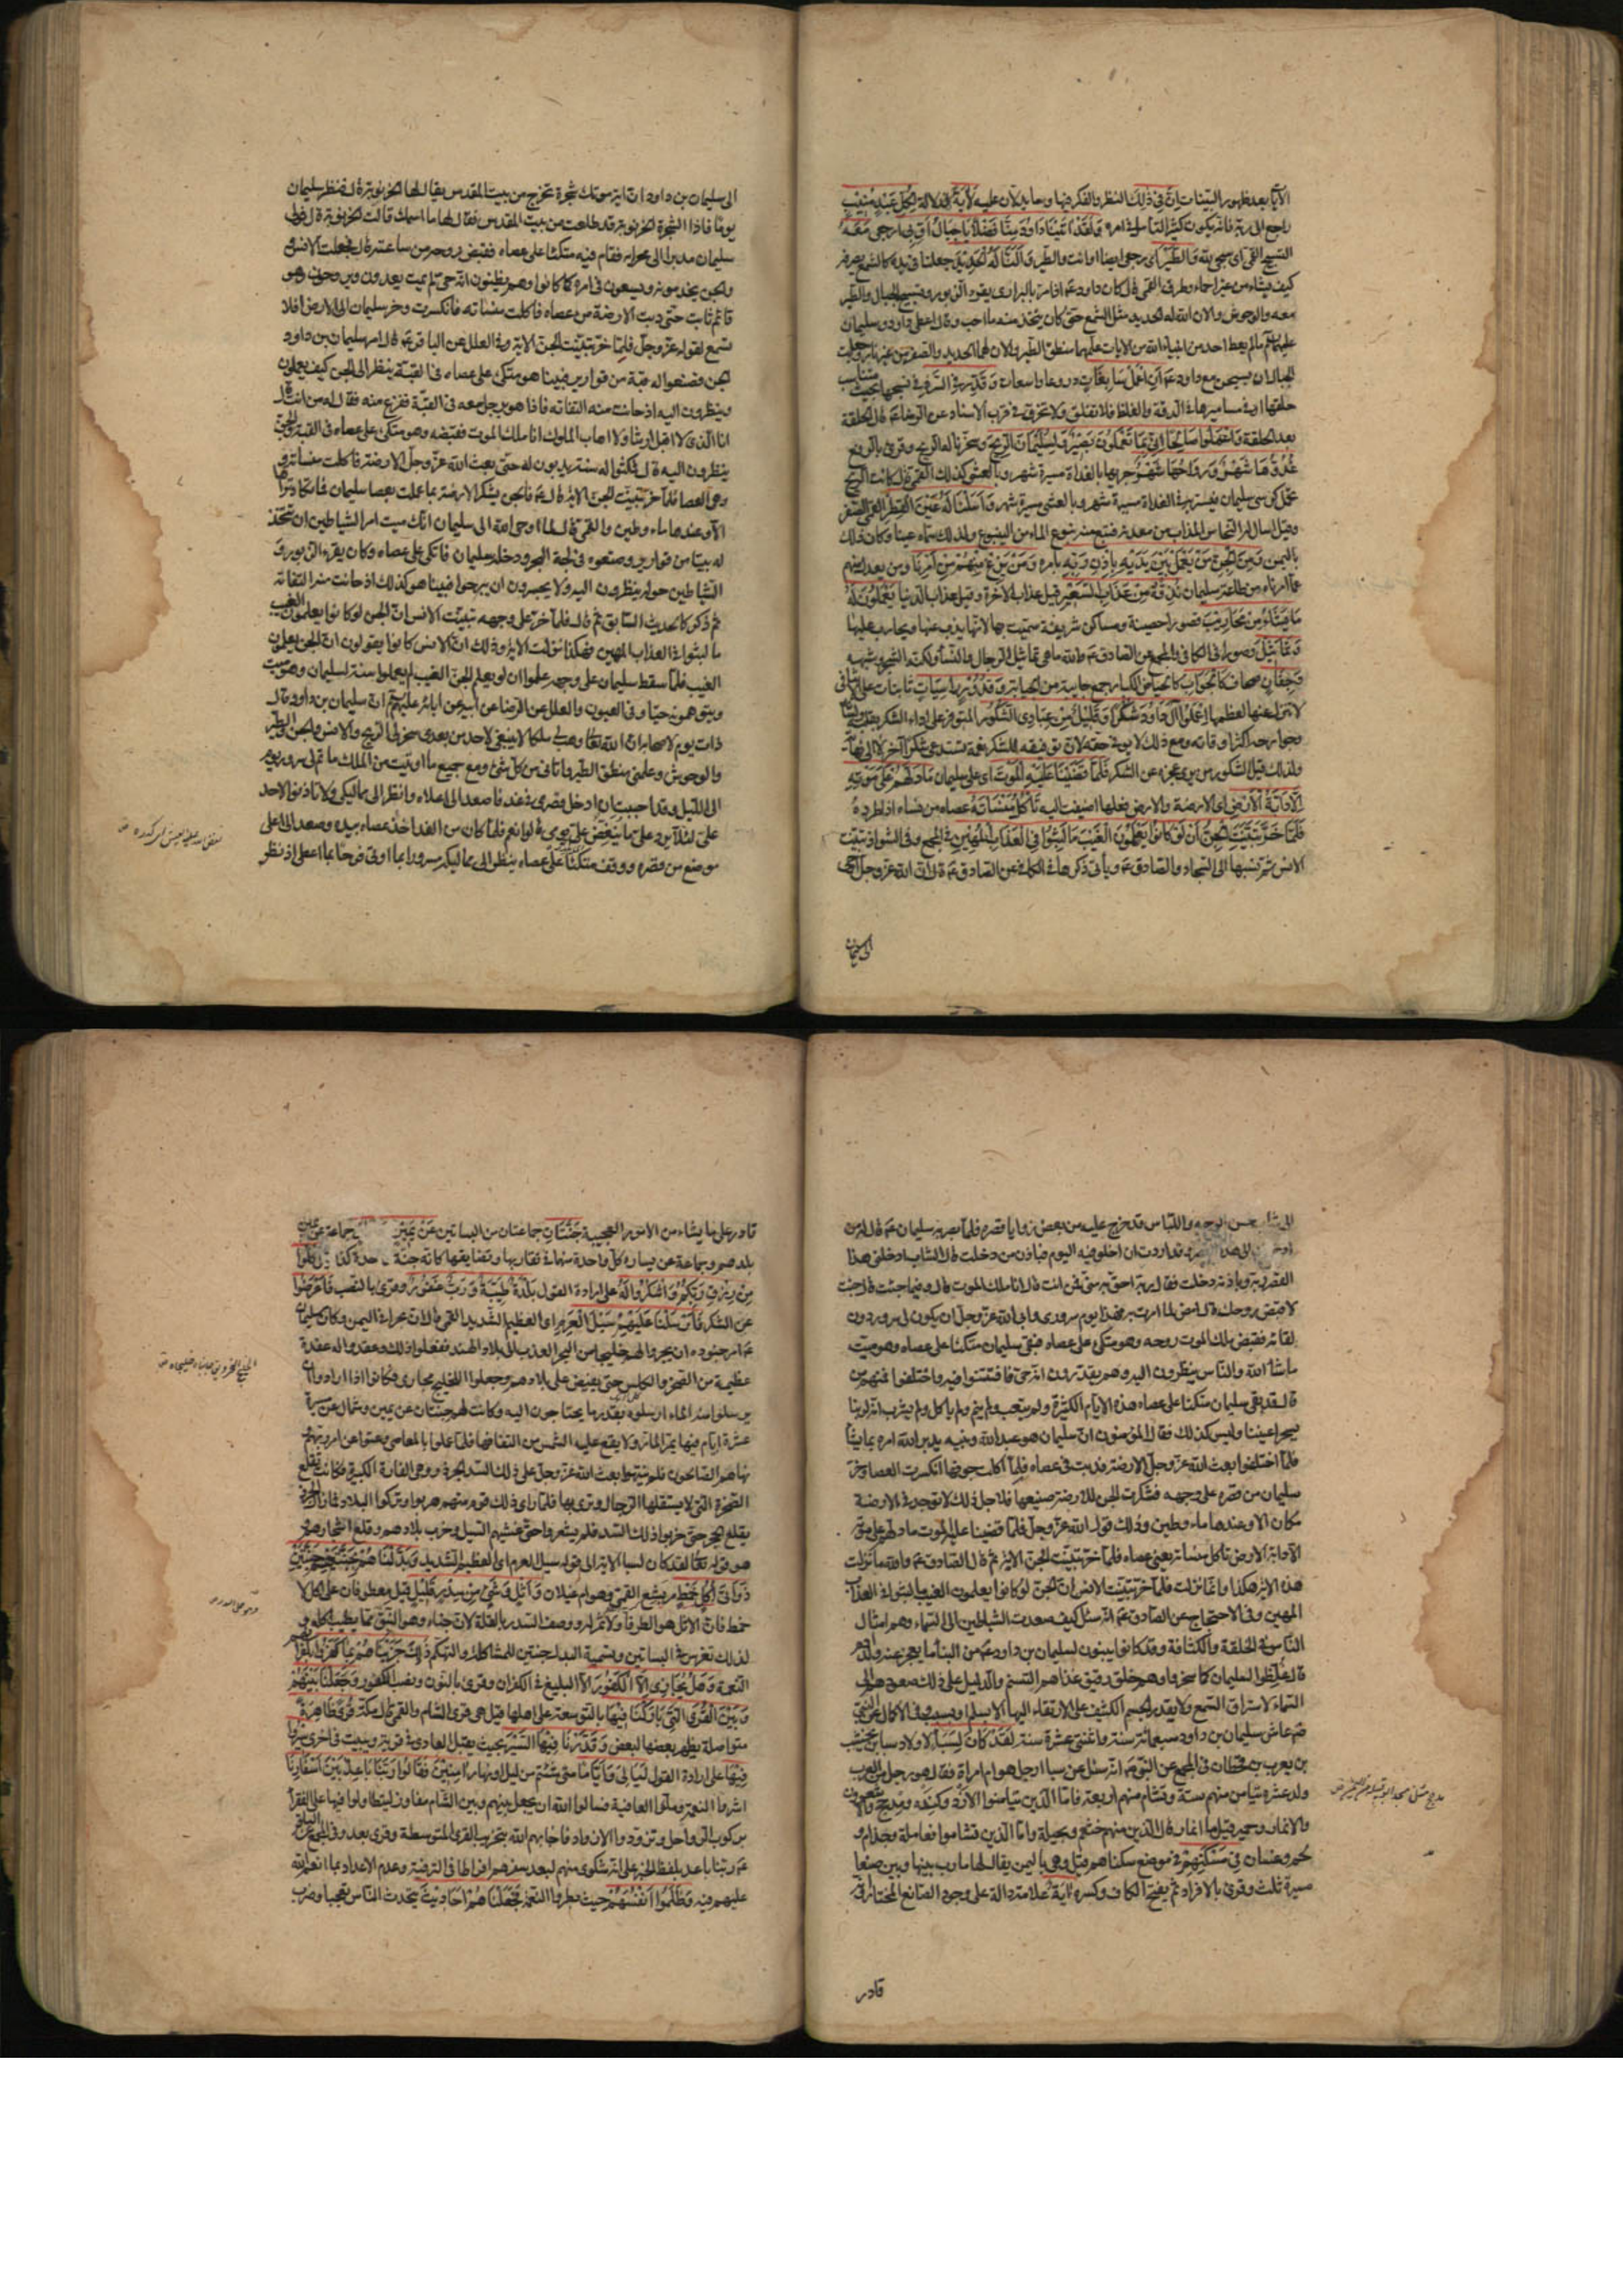 الآيا بعد ظهور البينات ان في ذلك النظر والفكر فيها وما يدلان عليه لآية لدلالة لكل عبد منيب
راجع الى ربه فانه يكون كثير التأمل في امره ولقد آتينا داود منا فضلا يا جبال اوبي ارجعي معه
التسبيح القمي اي سبحي لله والطير اي رجعي ايضا او انت والطير والنا له الحديد جعلنا في يده كالشمع يصرفه
كيف يشاء من غير احماء وطرق القمي قال كان داود عم اذا مر بالبراري يقرء الزبور ويسبح الجبال والطير
معه والوحوش والان الله له الحديد مثل الشمع حتى كان يتخذ منه ما احب وقال اعطي داود وسليمان
عليهما ما لم يعط احد من انبياء الله من الايات علمهما منطق الطير والان لهما الحديد والصفر من غير نار وجعلت
الجبال يسبحن مع داود عم ان اعمل سابغات دروعا واسعات وقدر في السرد في نسجها بحيث يتناسب
حلقها او في مساميرها في الدقة والغلظ فلا تقلق ولا تخرق في قرب الاسناد عن الرضا عم قال الحلقة
بعد الحلقة واعملوا صالحا اني بما تعملون بصير ولسليمان الريح وسخرنا له الريح وقرئ بالرفع
غدوها شهر ورواحها شهر جريها بالغداة مسيرة شهر وبالعشي كذلك القمي قال كانت الريح
تحمل كرسي سليمان فيسير به في الغداة مسيرة شهر وبالعشي مسيرة شهر واسلنا له عين القطر القمي الصفر
وقيل اسال له النحاس المذاب من معدنه فنبع منه نبوع الماء من الينبوع ولذلك سماه عينا وكان ذلك
باليمن ومن الجن من يعمل بين يديه باذن ربه بامره ومن يزغ منهم عن امرنا ومن يعدل منهم
عما امرناه من طاعة سليمان نذقه من عذاب السعير قيل عذاب الاخرة وقيل عذاب الدنيا يعملون له
ما يشاء من محاريب قصورا حصينة ومساكن شريفة سميت بها لانها يذب عنها ويحارب عليها
وتماثيل وصورا في الكافي والمجمع عن الصادق عم والله ما هي تماثيل الرجال والنساء ولكنه الشجر وشبهه
وجفان صحان كالجواب كالحياض الكبار جمع جابية من الجباية وقدور راسيات ثابتات على الاثافي
لا تنزل عنها لعظمها اعملوا آل داود شكرا وقليل من عبادي الشكور المتوفر على اداء الشكر بقلبه ولسانه
وجوارحه اكثر اوقاته ومع ذلك لا يوفي حقه لان توفيقه للشكر نعمة تستدعي شكرا آخر لا الى نهاية
ولذلك قيل الشكور من يرى عجزه عن الشكر فلما قضينا عليه الموت اي على سليمان ما دلهم على موته
الا دابة الارض اي الارضة والارض فعلها اضيفت اليه تأكل منسأته عصاه من نساه اذا طرده
فلما خر تبينت الجن ان لو كانوا يعلمون الغيب ما لبثوا في العذاب المهين في المجمع وفي الشواذ تبينت
الانس ثم نسبها الى السجاد والصادق عم ويأتي ذكرها في الكافي عن الصادق عم قال ان الله عز وجل اوحى
الى سليمان
الى سليمان بن داود ان اية موتك شجرة تخرج من بيت المقدس يقال لها الخرنوبة قال فنظر سليمان
يوما فاذا الشجرة الخرنوبة قد طلعت من بيت المقدس فقال لها ما اسمك قالت الخرنوبة قال فولى
سليمان مدبرا الى محرابه فقام فيه متكئا على عصاه فقبض روحه من ساعته قال فجعلت الانس
والجن يخدمونه ويسعون في امره كما كانوا وهم يظنون انه حي لم يمت يغدون ويروحون وهو
قائم ثابت حتى دبت الارضة من عصاه فاكلت منساته فانكسرت وخر سليمان الى الارض افلا
تسمع لقوله عز وجل فلما خر تبينت الجن الاية وفي العلل عن الباقر عم قال امر سليمان بن داود
الجن فصنعوا له قبة من قوارير فبينا هو متكئ على عصاه في القبة ينظر الى الجن كيف يعملون
وينظرون اليه اذ حانت منه التفاتة فاذا هو برجل معه في القبة ففزع منه فقال له من انت قال
انا الذي لا اقبل الرشا ولا اهاب الملوك انا ملك الموت فقبضه وهو متكئ على عصاه في القبة والجن
ينظرون اليه قال فمكثوا له سنة يديبون له حتى بعث الله عز وجل الارضة فاكلت منساته
وهي العصا فلما خر تبينت الجن الاية قال عم فالجن يشكر الارضة بما عملت بعصا سليمان فما تكاد تراها
الا وعندها ماء وطين والقمي قال لما اوحى الله الى سليمان انك ميت امر الشياطين ان تتخذ
له بيتا من قوارير وضعوه في لجة البحر ودخله سليمان فاتكى على عصاه وكان يقرء الزبور و
الشياطين حوله ينظرون اليه ولا يجسرون ان يبرحوا فبينا هو كذلك اذ حانت منه التفاتة
ثم ذكر كالحديث السابق ثم قال فلما خر على وجهه تبينت الانس ان الجن لو كانوا يعلمون الغيب
ما لبثوا في العذاب المهين فهكذا نزلت الاية وذلك ان الانس كانوا يقولون ان الجن يعلمون
الغيب فلما سقط سليمان على وجهه علموا ان لو يعلم الجن الغيب لم يعملوا سنة لسليمان وهو ميت
ويتوهمونه حيا وفي العيون والعلل عن الرضا عن ابيه عن ابائه عليهم ان سليمان بن داود قال
ذات يوم لاصحابه ان الله تعالى وهب لي ملكا لا ينبغي لاحد من بعدي سخر لي الريح والانس والجن والطير
والوحوش وعلمني منطق الطير واتاني من كل شئ ومع جميع ما اوتيت من الملك ما تم لي سرور يوم
الى الليل وقد احببت ان ادخل قصري في غد فاصعد الى اعلاه وانظر الى ممالكي ولا تاذنوا لاحد
علي لئلا يرد علي ما ينغص علي يومي قالوا نعم فلما كان من الغد اخذ عصاه بيده وصعد الى اعلى
موضع من قصره ووقف متكئا على عصاه ينظر الى ممالكه سرورا بما اوتي فرحا بما اعطي اذ نظر
الى شاب حسن الوجه واللباس قد خرج عليه من بعض زوايا قصره فلما بصر به سليمان عم قال له من
ادخلك الى هذا القصر وقد اردت ان اخلو فيه اليوم فباذن من دخلت قال الشاب ادخلني هذا
القصر ربه وباذنه دخلت فقال ربه احق به مني فمن انت قال انا ملك الموت قال وفيما جئت قال جئت
لاقبض روحك قال امض لما امرت به فهذا يوم سروري وابى الله عز وجل ان يكون لي سرور دون
لقائه فقبض ملك الموت روحه وهو متكئ على عصاه فبقي سليمان متكئا على عصاه وهو ميت
ما شاء الله والناس ينظرون اليه وهم يقدرون انه حي فافتتنوا فيه واختلفوا فمنهم من
قال لقد بقي سليمان متكئا على عصاه هذه الايام الكثيرة ولم يتعب ولم ينم ولم ياكل ولم يشرب انه لربنا
فقال المؤمنون ان سليمان هو عبد الله ونبيه يدبر الله امره بما يشاء
فلما اختلفوا بعث الله عز وجل الارضة فدبت في عصاه فلما اكلت جوفها انكسرت العصا وخر
سليمان من قصره على وجهه فشكرت الجن للارضة صنيعها فلاجل ذلك لا توجد الارضة في
مكان الا وعندها ماء وطين وذلك قول الله عز وجل فلما قضينا عليه الموت ما دلهم على موته
الا دابة الارض تاكل منساته يعني عصاه فلما خر تبينت الجن الاية ثم قال الصادق عم والله ما نزلت
هذه الاية هكذا وانما نزلت فلما خر تبينت الانس ان الجن لو كانوا يعلمون الغيب ما لبثوا في العذاب
المهين وفي الاحتجاج عن الصادق عم انه سئل كيف صعدت الشياطين الى السماء وهم امثال
الناس في الخلقة والكثافة وقد كانوا يبنون لسليمان بن داود عم من البناء ما يعجز عنه ولد آدم
قال غلظوا لسليمان كما سخروا وهم خلق رقيق غذاهم التنسم والدليل على ذلك صعودهم الى
السماء لاستراق السمع ولا يقدر الجسم الكثيف على الارتقاء اليها الا بسلم او سبب وفي الاكمال عن النبي
صم عاش سليمان بن داود سبعمائة سنة واثنتي عشرة سنة لقد كان لسبأ لاولاد سبا بن يشجب
بن يعرب بن قحطان في المجمع عن النبي صم انه سئل عن سبا ارجل هو ام امراة فقال هو رجل من العرب
ولد عشرة تيامن منهم ستة وتشام منهم اربعة فاما الذين تيامنوا الازد وكندة ومذحج والاشعرون
والانمار وحمير قيل ما انمار قال الذين منهم خثعم وبجيلة واما الذين تشاموا فعاملة وجذام و
لخم وغسان في مسكنهم في موضع سكناهم قيل وهي باليمن يقال لها مارب بينها وبين صنعا
مسيرة ثلث وقرئ بالافراد ثم بفتح الكاف وكسره آية علامة دالة على وجود الصانع المختار وانه
قادر
قادر على ما يشاء من الامور العجيبة جنتان جماعتان من البساتين عن يمين جماعة عن يمين
بلدهم وجماعة عن يساره كل واحدة منهما في تقاربها وتضايقها كانه جنة واحدة كلوا
من رزق ربكم واشكروا له على ارادة القول بلدة طيبة ورب غفور وقرئ بالنصب فاعرضوا
عن الشكر فارسلنا عليهم سيل العرم اي العظيم الشديد القمي قال ان بحرا في اليمن وكان سليمان
عم امر جنوده ان يجروا لهم خليجا من البحر العذب الى بلاد الهند ففعلوا ذلك وعقدوا له عقدة
عظيمة من الصخر والكلس حتى يفيض على بلادهم وجعلوا للخليج مجاري فكانوا اذا ارادوا ان
يرسلوا منه الماء ارسلوه بقدر ما يحتاجون اليه وكانت لهم جنتان عن يمين وشمال عن مسيرة
عشرة ايام فيها يمر المار ولا يقع عليه الشمس من التفافها فلما عملوا بالمعاصي وعتوا عن امر ربهم
نهاهم الصالحون فلم ينتهوا بعث الله عز وجل على ذلك السد الجرذ وهي الفارة الكبيرة فكانت تقلع
الصخرة التي لا يستقلها الرجال وترمي بها فلما راى ذلك قوم منهم هربوا وتركوا البلاد فما زال الجرذ
يقلع الحجر حتى خربوا ذلك السد فلم يشعروا حتى غشيهم السيل وخرب بلادهم وقلع اشجارهم
وهو قوله تعالى لقد كان لسبا الاية الى قوله سيل العرم اي العظيم الشديد وبدلناهم بجنتيهم جنتين
ذواتي اكل خمط مر بشع القمي وهو ام غيلان واثل وشئ من سدر قليل قيل معطوفان على اكل لا
خمط فان الاثل هو الطرفا ولا ثمر له ووصف السدر بالقلة لان جناه وهو النبق مما يطيب اكله و
لذلك تغرس في البساتين وتسمية البدل جنتين للمشاكلة والتهكم ذلك جزيناهم بما كفروا بكفرانهم
النعمة وهل نجازي الا الكفور الا البليغ في الكفران وقرئ بالنون ونصب الكفور وجعلنا بينهم
وبين القرى التي باركنا فيها بالتوسعة على اهلها قيل هي قرى الشام والقمي قال مكة قرى ظاهرة
متواصلة يظهر بعضها لبعض وقدرنا فيها السير بحيث يقيل الغادي في قرية ويبيت في اخرى سيروا
فيها على ارادة القول ليالي واياما متى شئتم من ليل او نهار آمنين فقالوا ربنا باعد بين اسفارنا
اشروا النعمة وملوا العافية فسالوا الله ان يجعل بينهم وبين الشام مفاوز ليتطاولوا فيها على الفقراء
بركوب الرواحل وتزود الازواد فاجابهم الله بتخريب القرى المتوسطة وقرئ بعد وفي المجمع عن الباقر
عم ربنا باعد بلفظ الخبر على انه شكوى منهم لبعد سفرهم افراطا في الترفية وعدم الاعتداد بما انعم الله
عليهم فيه وظلموا انفسهم حيث بطروا النعمة فجعلناهم احاديث يتحدث الناس بهم تعجبا وضرب